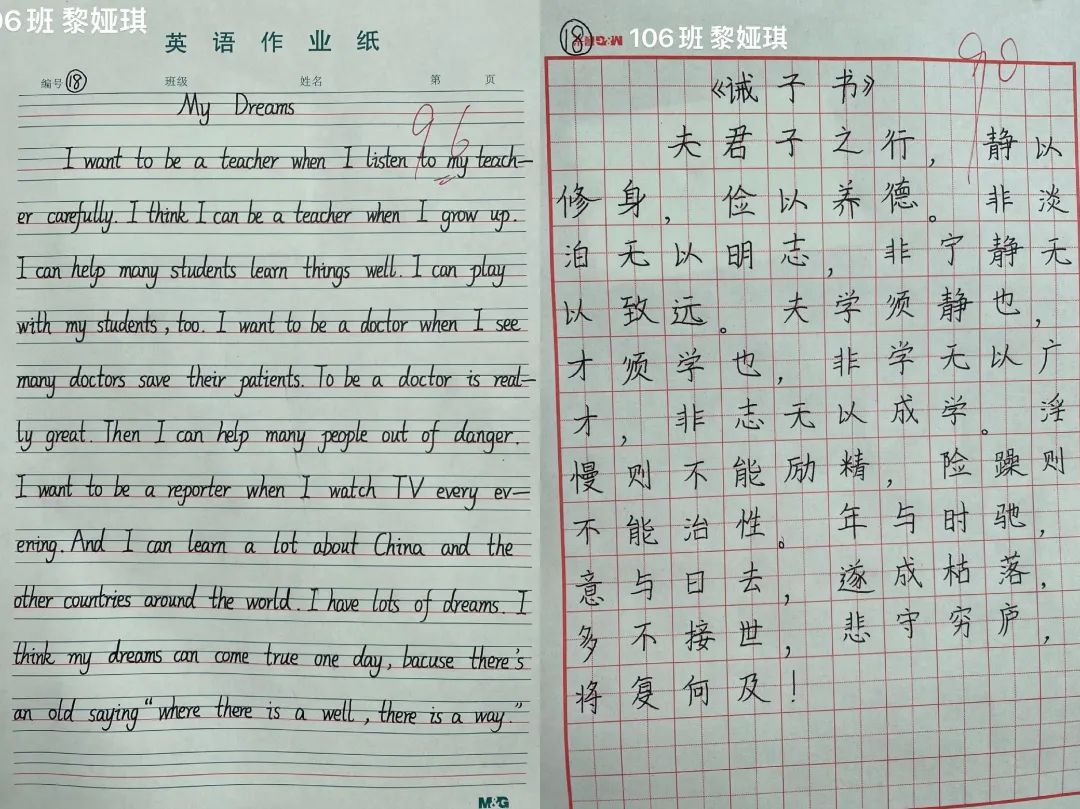 06班 黎娅琪
英语作业纸
编号 18 班级 姓名 第 页
My Dreams
96
I want to be a teacher when I listen to my teach-
er carefully. I think I can be a teacher when I grow up.
I can help many students learn things well. I can play
with my students, too. I want to be a doctor when I see
many doctors save their patients. To be a doctor is real-
ly great. Then I can help many people out of danger.
I want to be a reporter when I watch TV every ev-
ening. And I can learn a lot about China and the
other countries around the world. I have lots of dreams. I
think my dreams can come true one day, bacuse there's
an old saying "where there is a well, there is a way."
M&G
18 M&G 106班 黎娅琪
90
《诫子书》
夫君子之行，静以
修身，俭以养德。非淡
泊无以明志，非宁静无
以致远。夫学须静也，
才须学也，非学无以广
才，非志无以成学。淫
慢则不能励精，险躁则
不能治性。年与时驰，
意与日去，遂成枯落，
多不接世，悲守穷庐，
将复何及！